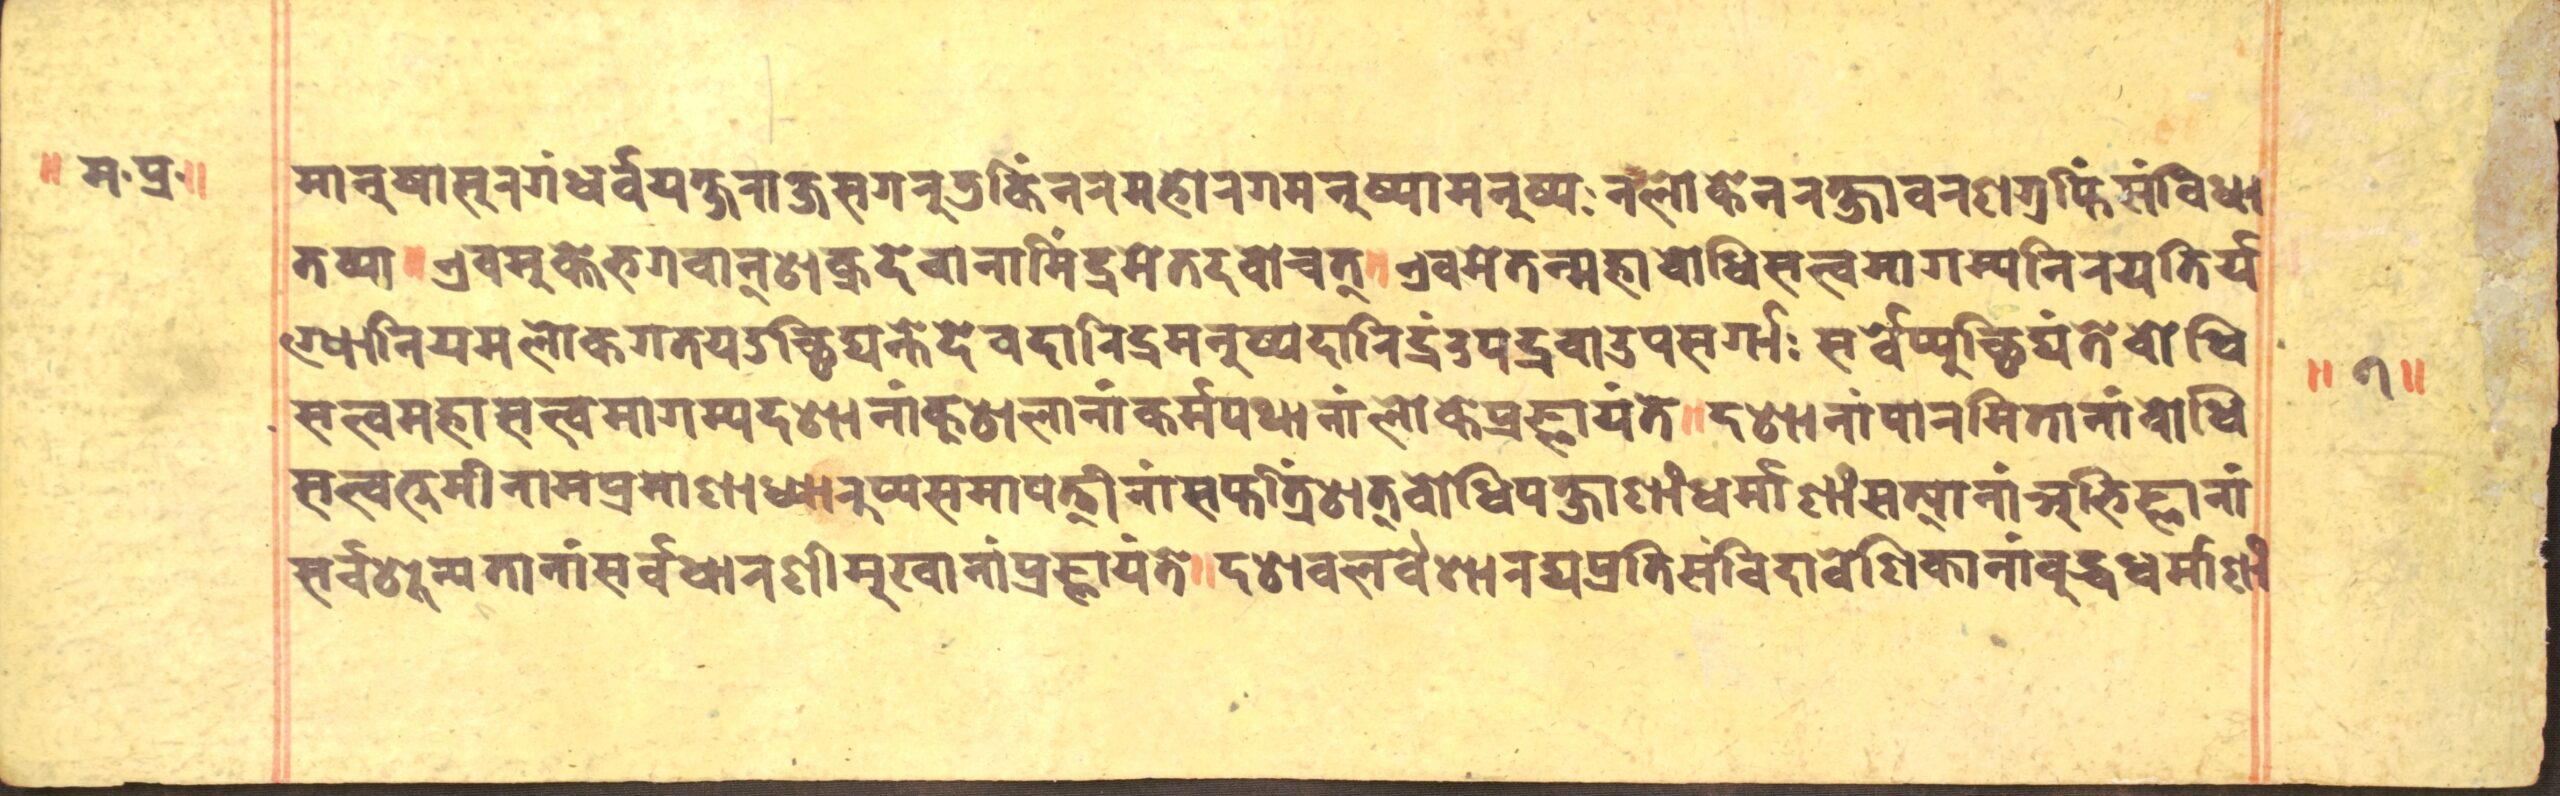 ॥ म.प्र.॥
मानुषासुरगंधर्वयक्षराक्षसगरुडकिंनरमहोरगमनुष्यामनुष्यः रलोकेनरक्षावरणगुप्तिंसंविधा
तव्या॥एवमुक्तेभगवान्शक्रदेवानामिंद्रमेतदवोचत्॥एवमेतन्महाबोधिसत्त्वमागम्यनिरयतिर्य
ग्योनियमलोकगतयउच्छिद्यन्तेदेवदारिद्रमनुष्यदारिद्रंउपद्रवाउपसर्गाः सर्वेप्युच्छिद्यंतेबोधि
सत्त्वमहासत्त्वमागम्यदशानांकुशलानांकर्मपथानांलोकेप्रज्ञायंते॥दशानांपारमितानांबोधि
सत्त्वभूमीनामप्रमाणाध्यारुप्यसमापत्तीनांसप्तत्रिंशत्बोधिपक्षाणांधर्माणांसत्यानांअभिज्ञानां
सर्वशून्यतानांसर्वधारणीमुखानांप्रज्ञायंते॥दशबलवैशारद्यप्रतिसंविदावेणिकानांबुद्धधर्माणां
॥ १॥